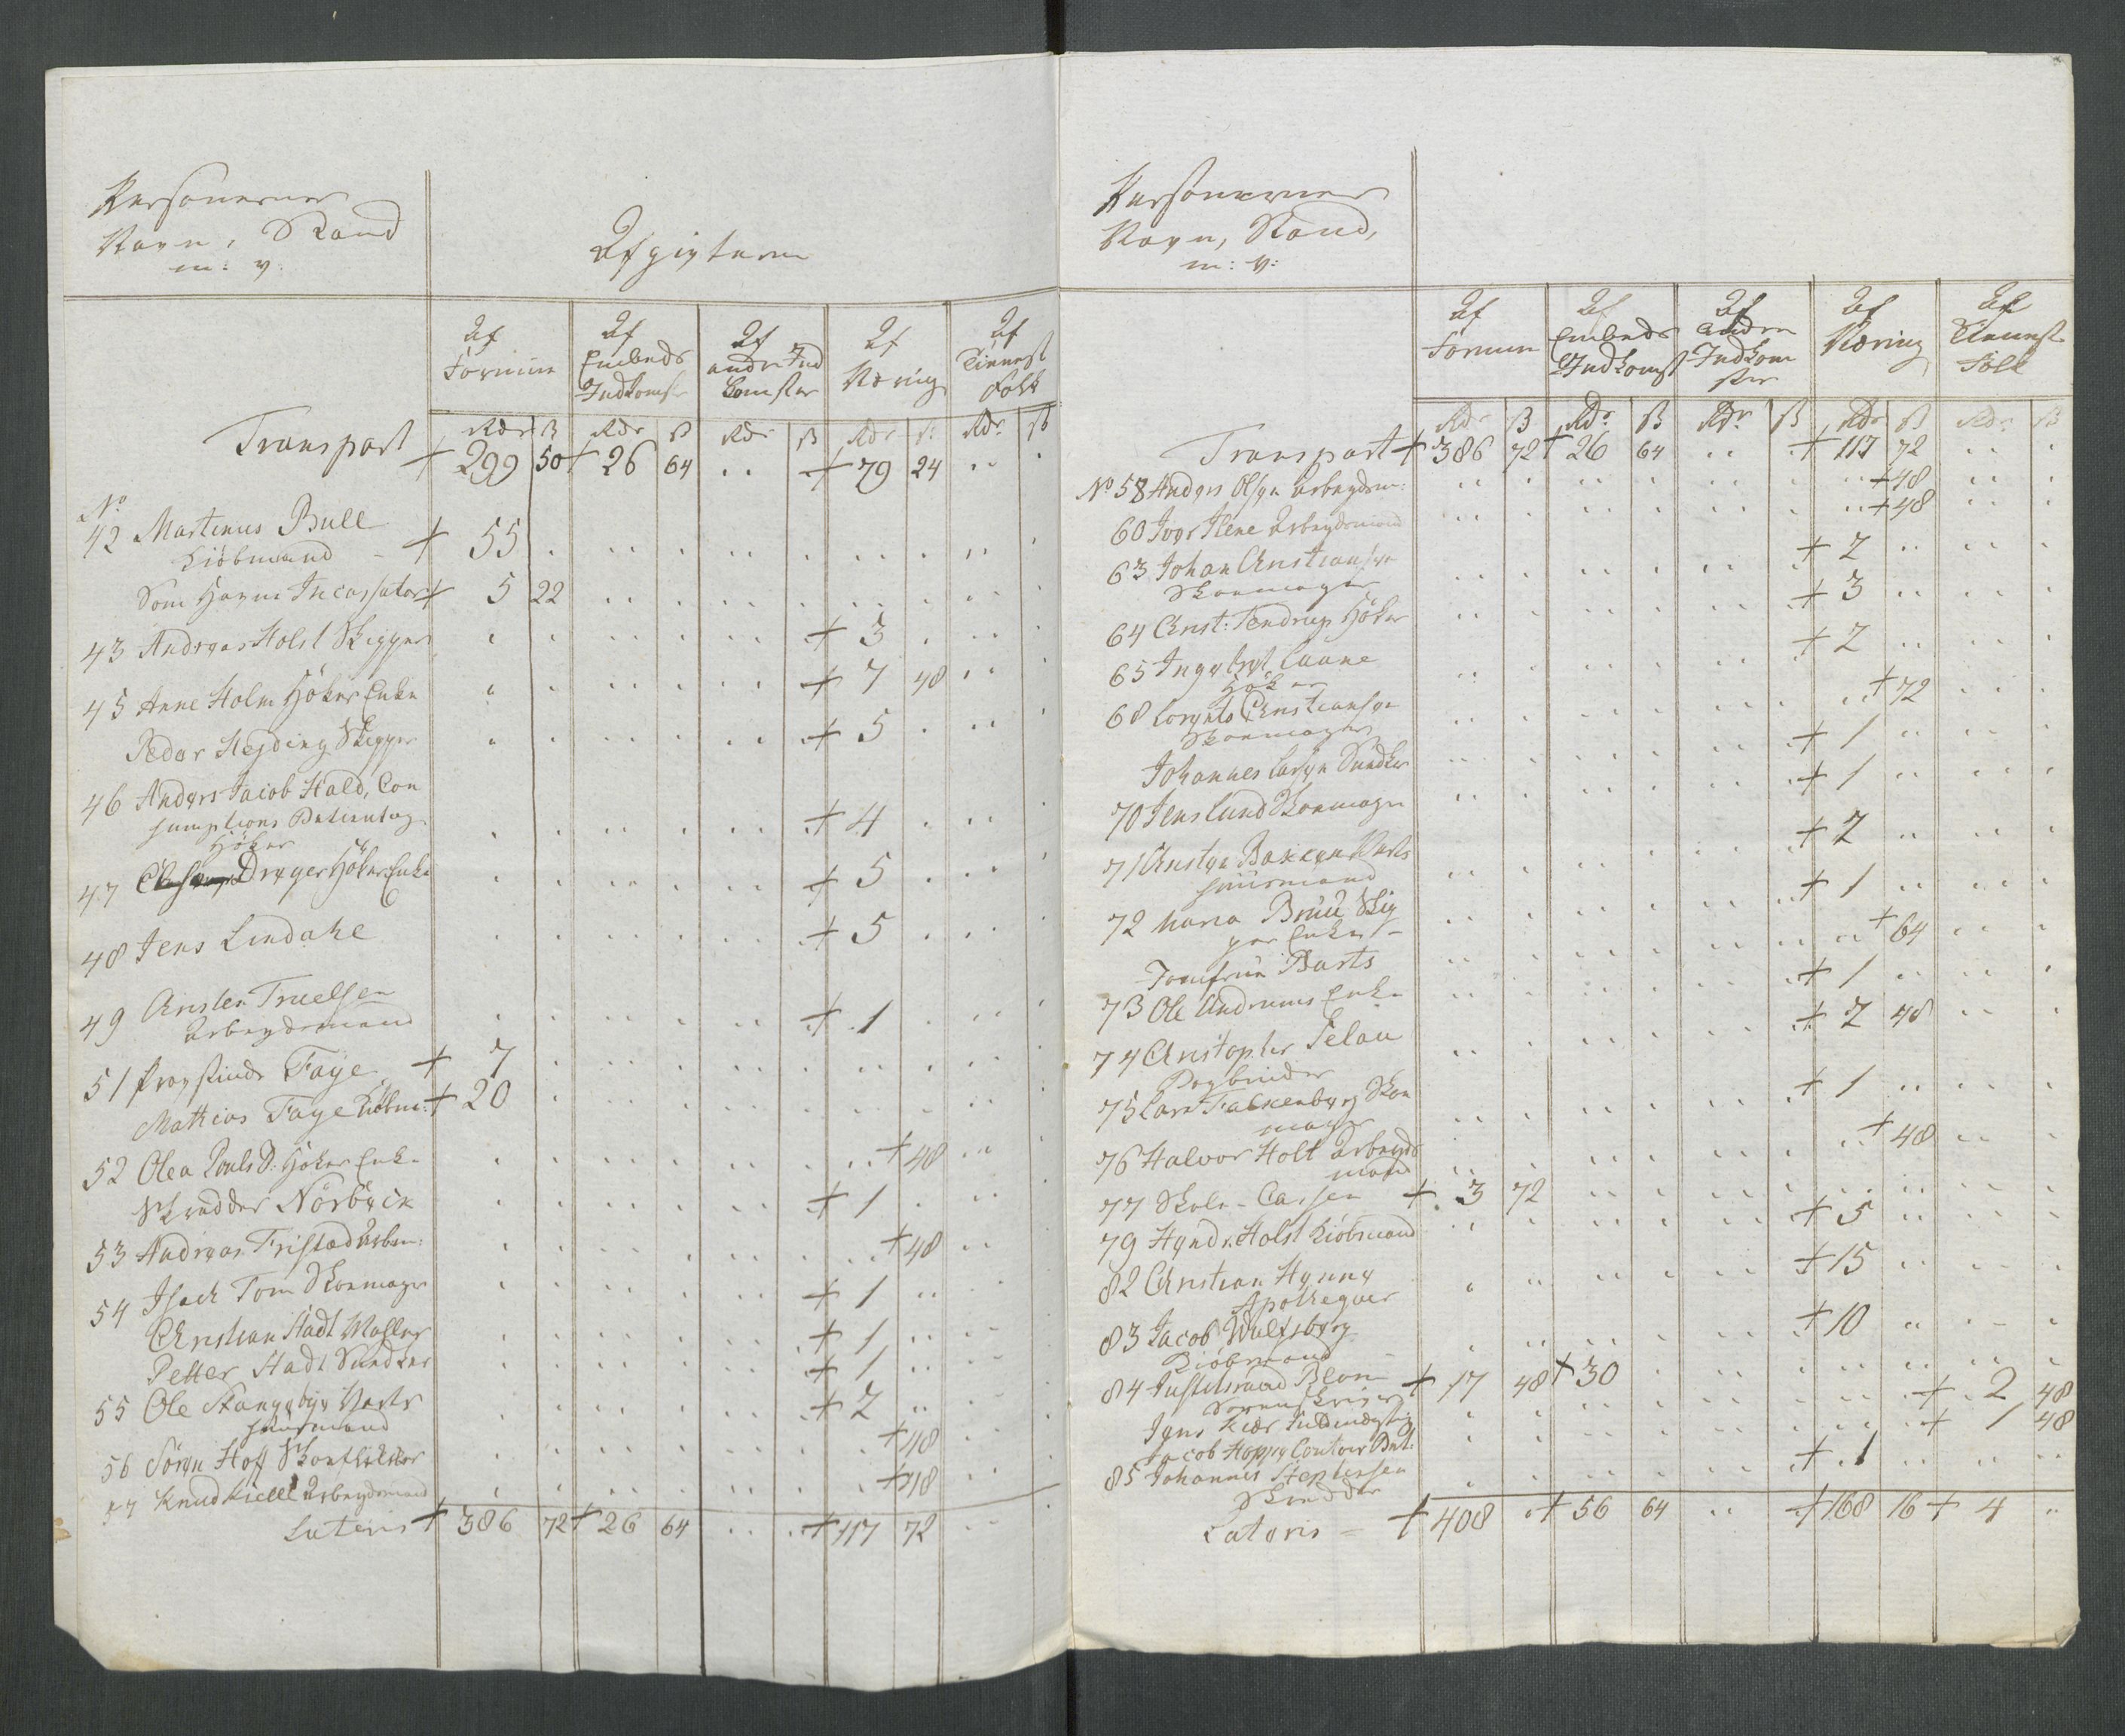 Personernes
Navn, Stand
m: v:
Afgivterne
Af Formue
Af Embeds Indkomst
Af andre Ind komster
Af Næring
Af Tienneste Folk
Rdr ß Rdr ß Rdr ß Rdr ß Rdr ß
Transport + 299 50 + 26 64 .. . + 79 24 .. .
No
42 Martinus Bull
Kiöbmand - + 55
Som Havne Incassator + 5 22
43 Andreas Holst Skipper + 3
45 Anne Holm Höker Enke + 7 48
Peder Heyding Skipper + 5
46 Anders Jacob Hald, Con
sumptions Betientog
Höker + 4
47 Dreyer Höker Enke + 5
48 Jens Lindahl + 5
49 Christen Truelsen
Arbeydsmand + 1
51 Provstinde Faye + 7
Mathias Faye Kiöbm: + 20
52 Olea Pouls D: Höker Enke + 48
Skredder Nörbeck + 1
53 Andreas Fristad Arbm: + 48
54 Isach Tom Skoemager + 1
Christian Stadt Mahler + 1
Petter Stadt Snedker + 1
55 Ole Stangebye Verts
huusmand + 2
56 Sören Hoff Skoeflikker + 48
57 Knud Kield Arbeydsmand + 48
Lateris + 386 72 + 26 64 .. . + 117 72 ..
Personernes
Navn, Stand,
m: v:
Af Formue
Af Embeds Indkomst
Af Andre Indkom ster
Af Næring
Af Tienneste Folk
Rdr ß Rdr ß Rdr ß Rdr ß Rdr ß
Transport + 386 72 + 26 64 .. . + 117 72 .. .
No 58 Anders Olsen Arbeydsm: + 48
60 Iver Ilene Arbeydsmand + 48
63 Johan Christiansen
Skoemager + 2
64 Christ: Tendrup Höker + 3
65 Ingebret Laane
Höker + 2
68 Lorents Christiansen
Skoemager + 72
Johannes Larsen Snedker + 1
70 Jens Lund Skoemager + 1
71 Christen Bakken Verts
huusmand + 2
72 Maria Bruu Skip
per Enke - + 1
Jomfrue Barts + 64
73 Ole Andrums Enke + 1
74 Christopher Pelau
Bogbinder + 2 48
75 Lars Falkenberg Skoe
mager + 1
76 Halvor Holt Arbeyds
mand + 48
77 Skole-Cassen + 3 72
79 Hend: Holst Kiöbmand + 5
82 Christian Henne
Apotheqver + 15
83 Jacob Wulfsberg
Kiöbmand + 10
84 Justitsraad Blom
Sorenskriver + 17 48 + 30
Jens Kiær + 2 48
Jacob Hoppe Contoir Bet: + 1 48
85 Johannes Stephensen
Skredder + 1
Lateris = + 408 . + 56 64 .. . + 168 16 + 4 ..